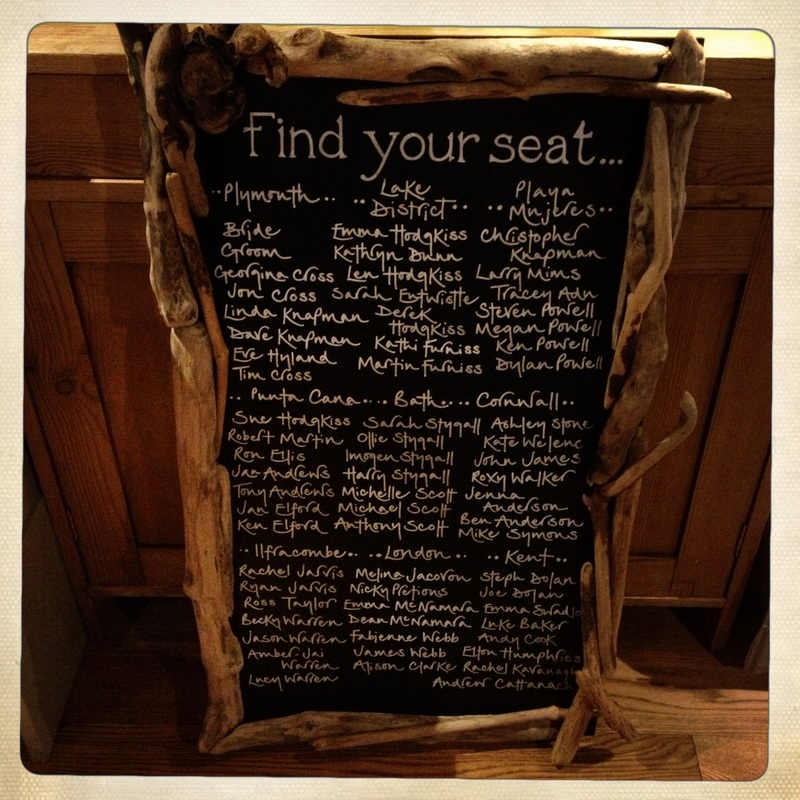 Find your seat...
..Plymouth..
Bride
Groom
Georgina Cross
Jon Cross
Linda Knapman
Dave Knapman
Eve Hyland
Tim Cross
..Lake
District..
Emma Hodgkiss
Kathryn Dunn
Len Hodgkiss
Sarah Entwistle
Derek
Hodgkiss
Kathi Furniss
Martin Furniss
Playa
..Mujeres..
Christopher
Knapman
Larry Mims
Tracey Adn
Steven Powell
Megan Powell
Ken Powell
Dylan Powell
..Punta Cana..
Sue Hodgkiss
Robert Martin
Ron Ellis
Jan Andrews
Tony Andrews
Jan Elford
Ken Elford
..Bath..
Sarah Stygall
Ollie Stygall
Imogen Stygall
Harry Stygall
Michelle Scott
Michael Scott
Anthony Scott
..Cornwall..
Ashley Stone
Kate Welenc
John James
Roxy Walker
Jenna
Anderson
Ben Anderson
Mike Symons
..Ilfracombe..
Rachel Jarvis
Ryan Jarvis
Ross Taylor
Becky Warren
Jason Warren
Amber-Jai
Warren
Lucy Warren
..London..
Melina Jacovou
Nicky Pretious
Emma McNamara
Dean McNamara
Fabienne Webb
James Webb
Alison Clarke
..Kent..
Steph Dolan
Joe Dolan
Emma
Luke Baker
Andy Cook
Elton Humphries
Rachel Kavanagh
Andrew Cattanach